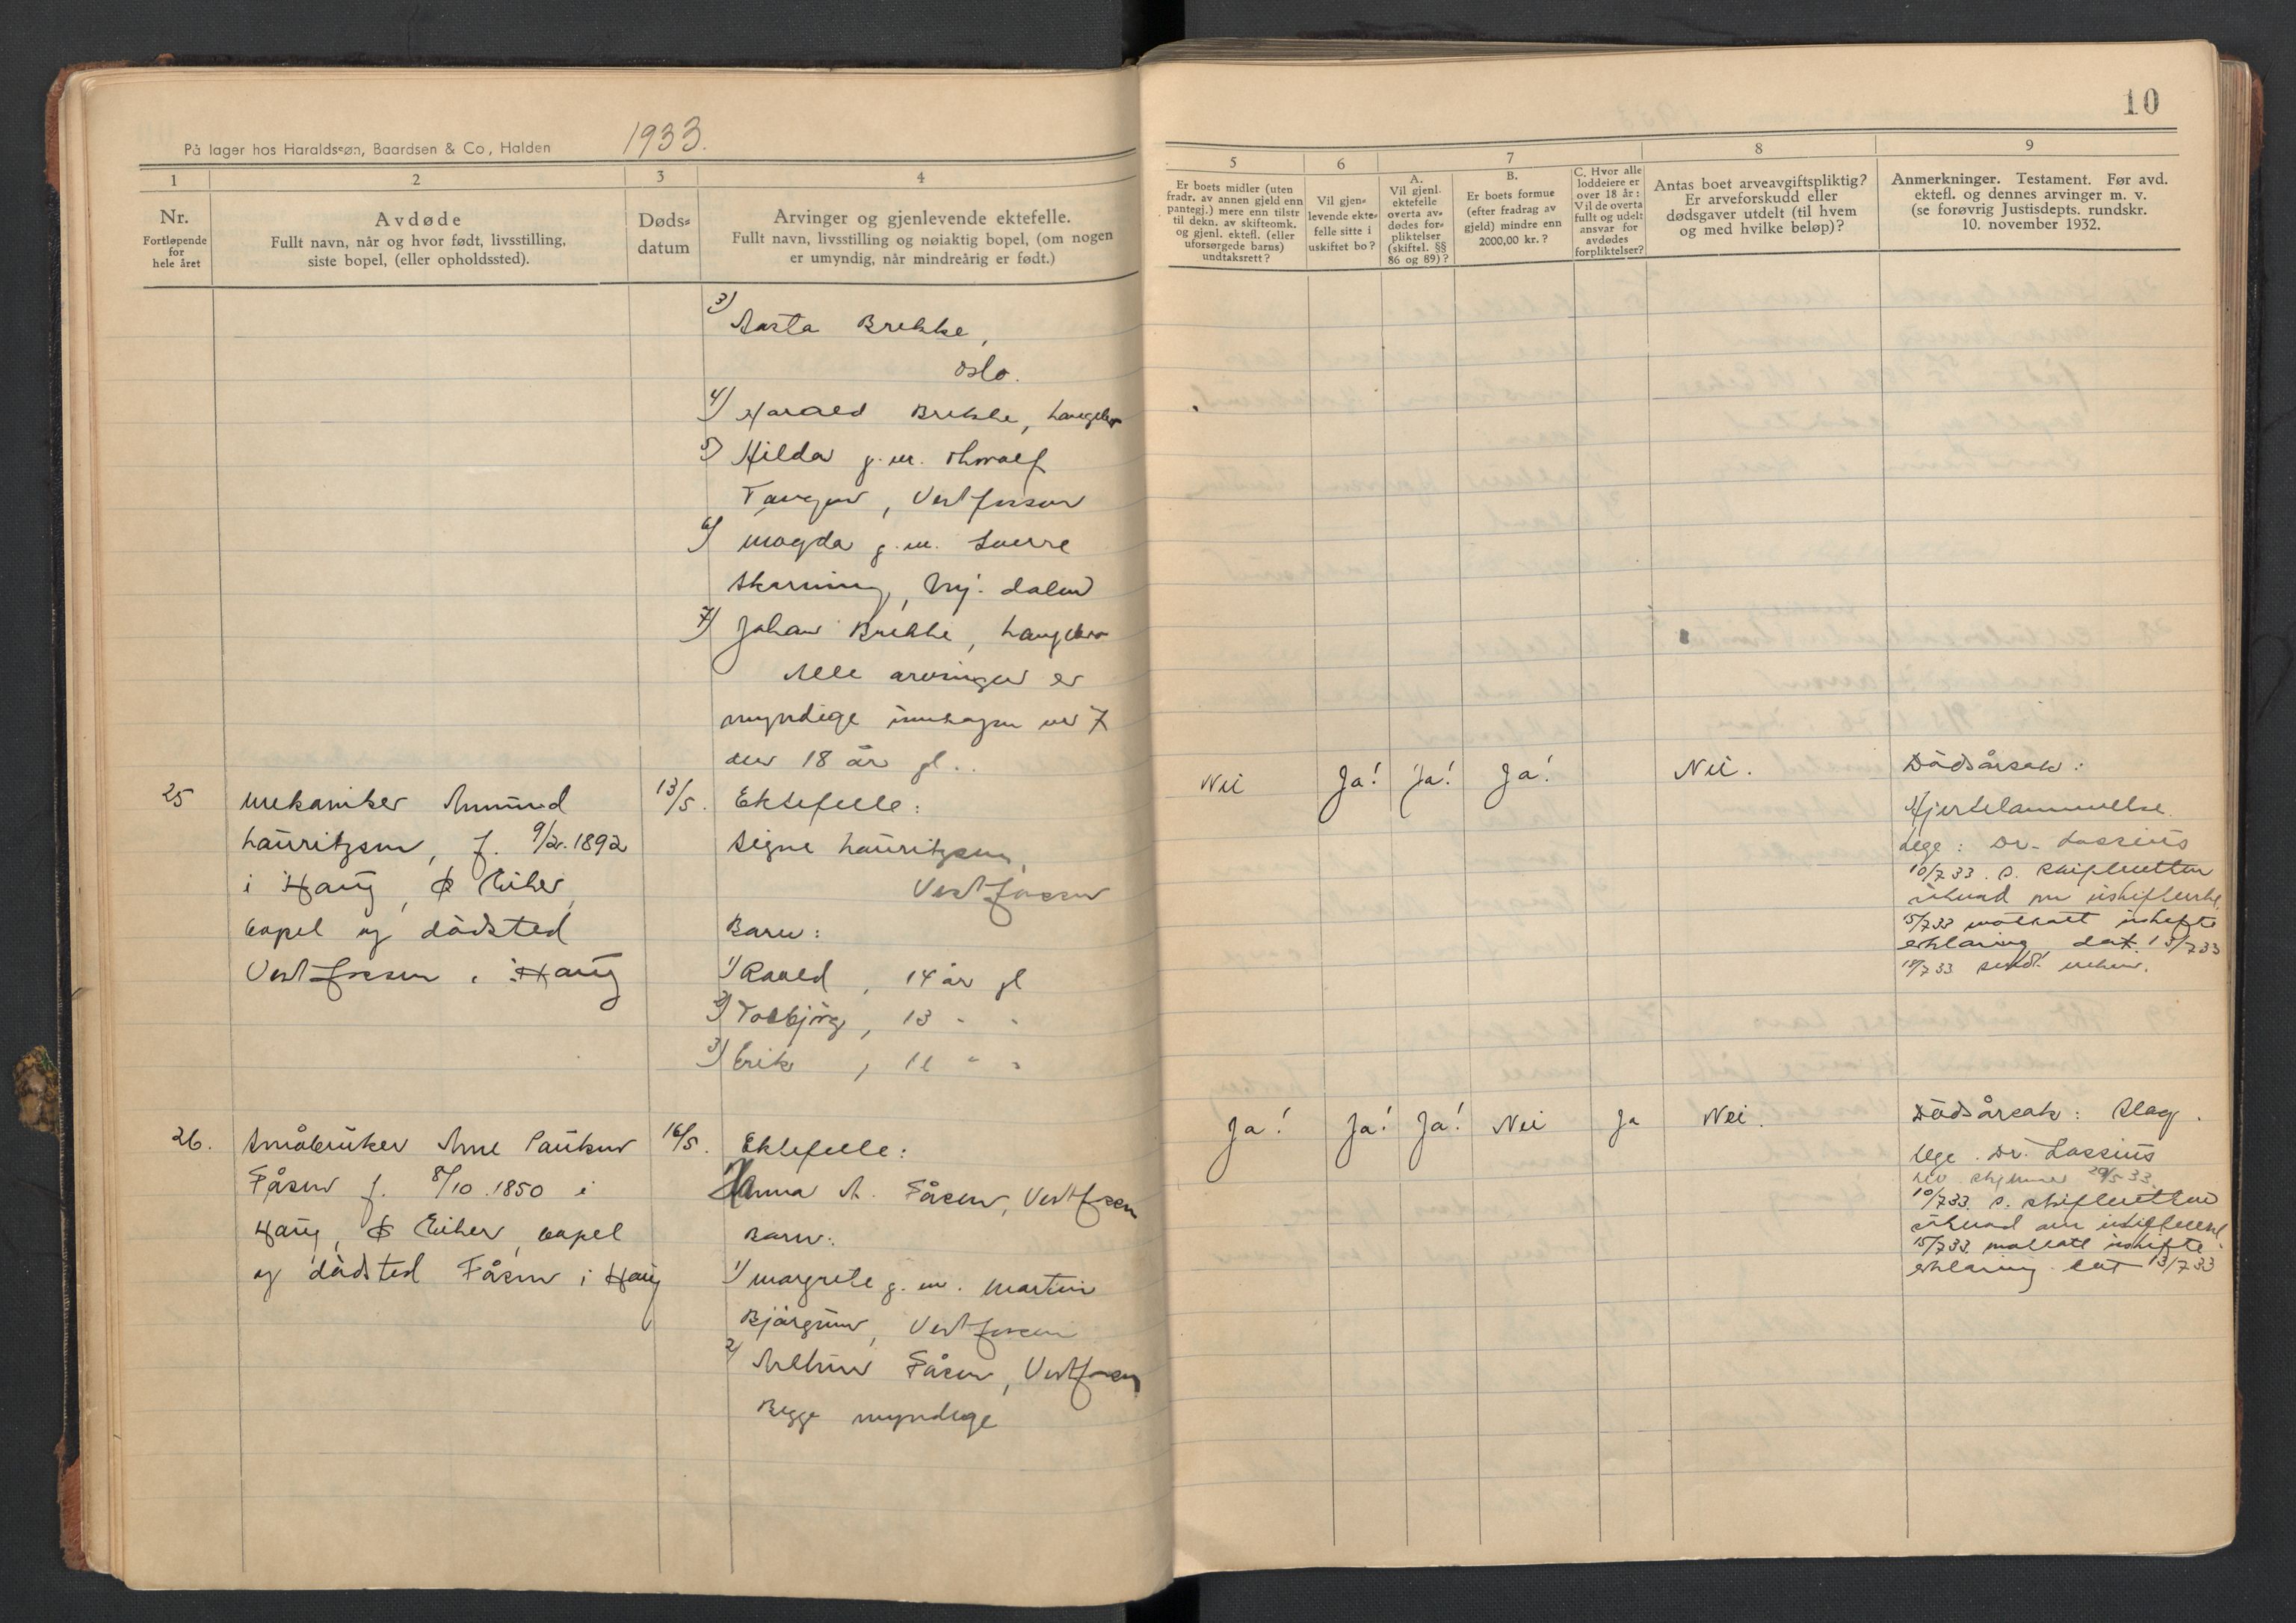 På lager hos Haraldssøn, Baardsen & Co, Halden
1933.
1
2
3
4
Nr.
Fortløpende
for
hele året
Avdøde
Fullt navn, når og hvor født, livsstilling,
siste bopel, (eller opholdssted).
Døds-
datum
Arvinger og gjenlevende ektefelle.
Fullt navn, livsstilling og nøiaktig bopel, (om nogen
er umyndig, når mindreårig er født.)
3) Aasta Brekke,
Oslo.
4) Harald Brekke,
5) Hilda g.m. Thoralf
Vestfossen
6) Magda g.m. Sverre
7) Johan Brekke,
Alle arvinger er
myndige 7
18 år gl..
25
mekaniker Amund
Lauritzen, f. 9/2. 1892
i Haug, Ø Eiker,
bopel og dødsted
Vestfossen i Haug
13/5.
Ektefelle:
Signe Lauritzen,
Vestfossen
Barn:
1) Roald, 14 år gl
2) Torbjörg, 13 " "
3) Erik, 11 " "
26.
Småbruker Arne Paulsen
Fåsen f. 8/10. 1850 i
Haug, Ø Eiker, bopel
og dödsted Fåsen i Haug
16/5.
Ektefelle:
Anna M. Fåsen, Vestfossen
Barn:
1) Margrete g.m. Martin
Vestfossen
2) Fåsen, Vestfossen
Begge myndige
10
5
6
7
8
9
Er boets midler (uten
fradr. av annen gjeld enn
pantegj.) mere enn tilstr
til dekn. av skifteomk.
og gjenl. ektefl. (eller
uforsørgede barns)
undtaksrett?
Vil gjen-
levende ekte-
felle sitte i
uskiftet bo?
A.
Vil gjenl.
ektefelle
overta av-
dødes for-
pliktelser
(skiftel. §§
86 og 89)?
B.
Er boets formue
(efter fradrag av
gjeld) mindre enn
2000,00 kr.?
C. Hvor alle
loddeiere er
over 18 år:
Vil de overta
fullt og udelt
ansvar for
avdødes
forpliktelser?
Antas boet arveavgiftspliktig?
Er arveforskudd eller
dødsgaver utdelt (til hvem
og med hvilke beløp)?
Anmerkninger. Testament. Før avd.
ektefl. og dennes arvinger m. v.
(se forøvrig Justisdepts. rundskr.
10. november 1932.
Nei
Ja!
Ja!
Ja!
Nei.
Dödsårsak:
Hjertelammelse.
Lege: Dr. Lassius
10/7 33. s. skifteretten
15/7 33 mottatt uskifte
erklæring dat. 13/7 33
Ja!
Ja!
Ja!
Nei
Ja
Nei.
Dödsårsak: Slag.
lege. Dr. Lassius
29/5 33.
10/7 33. s. skifteretten
15/7 33. mottatt uskifte
erklæring dat 13/7 33